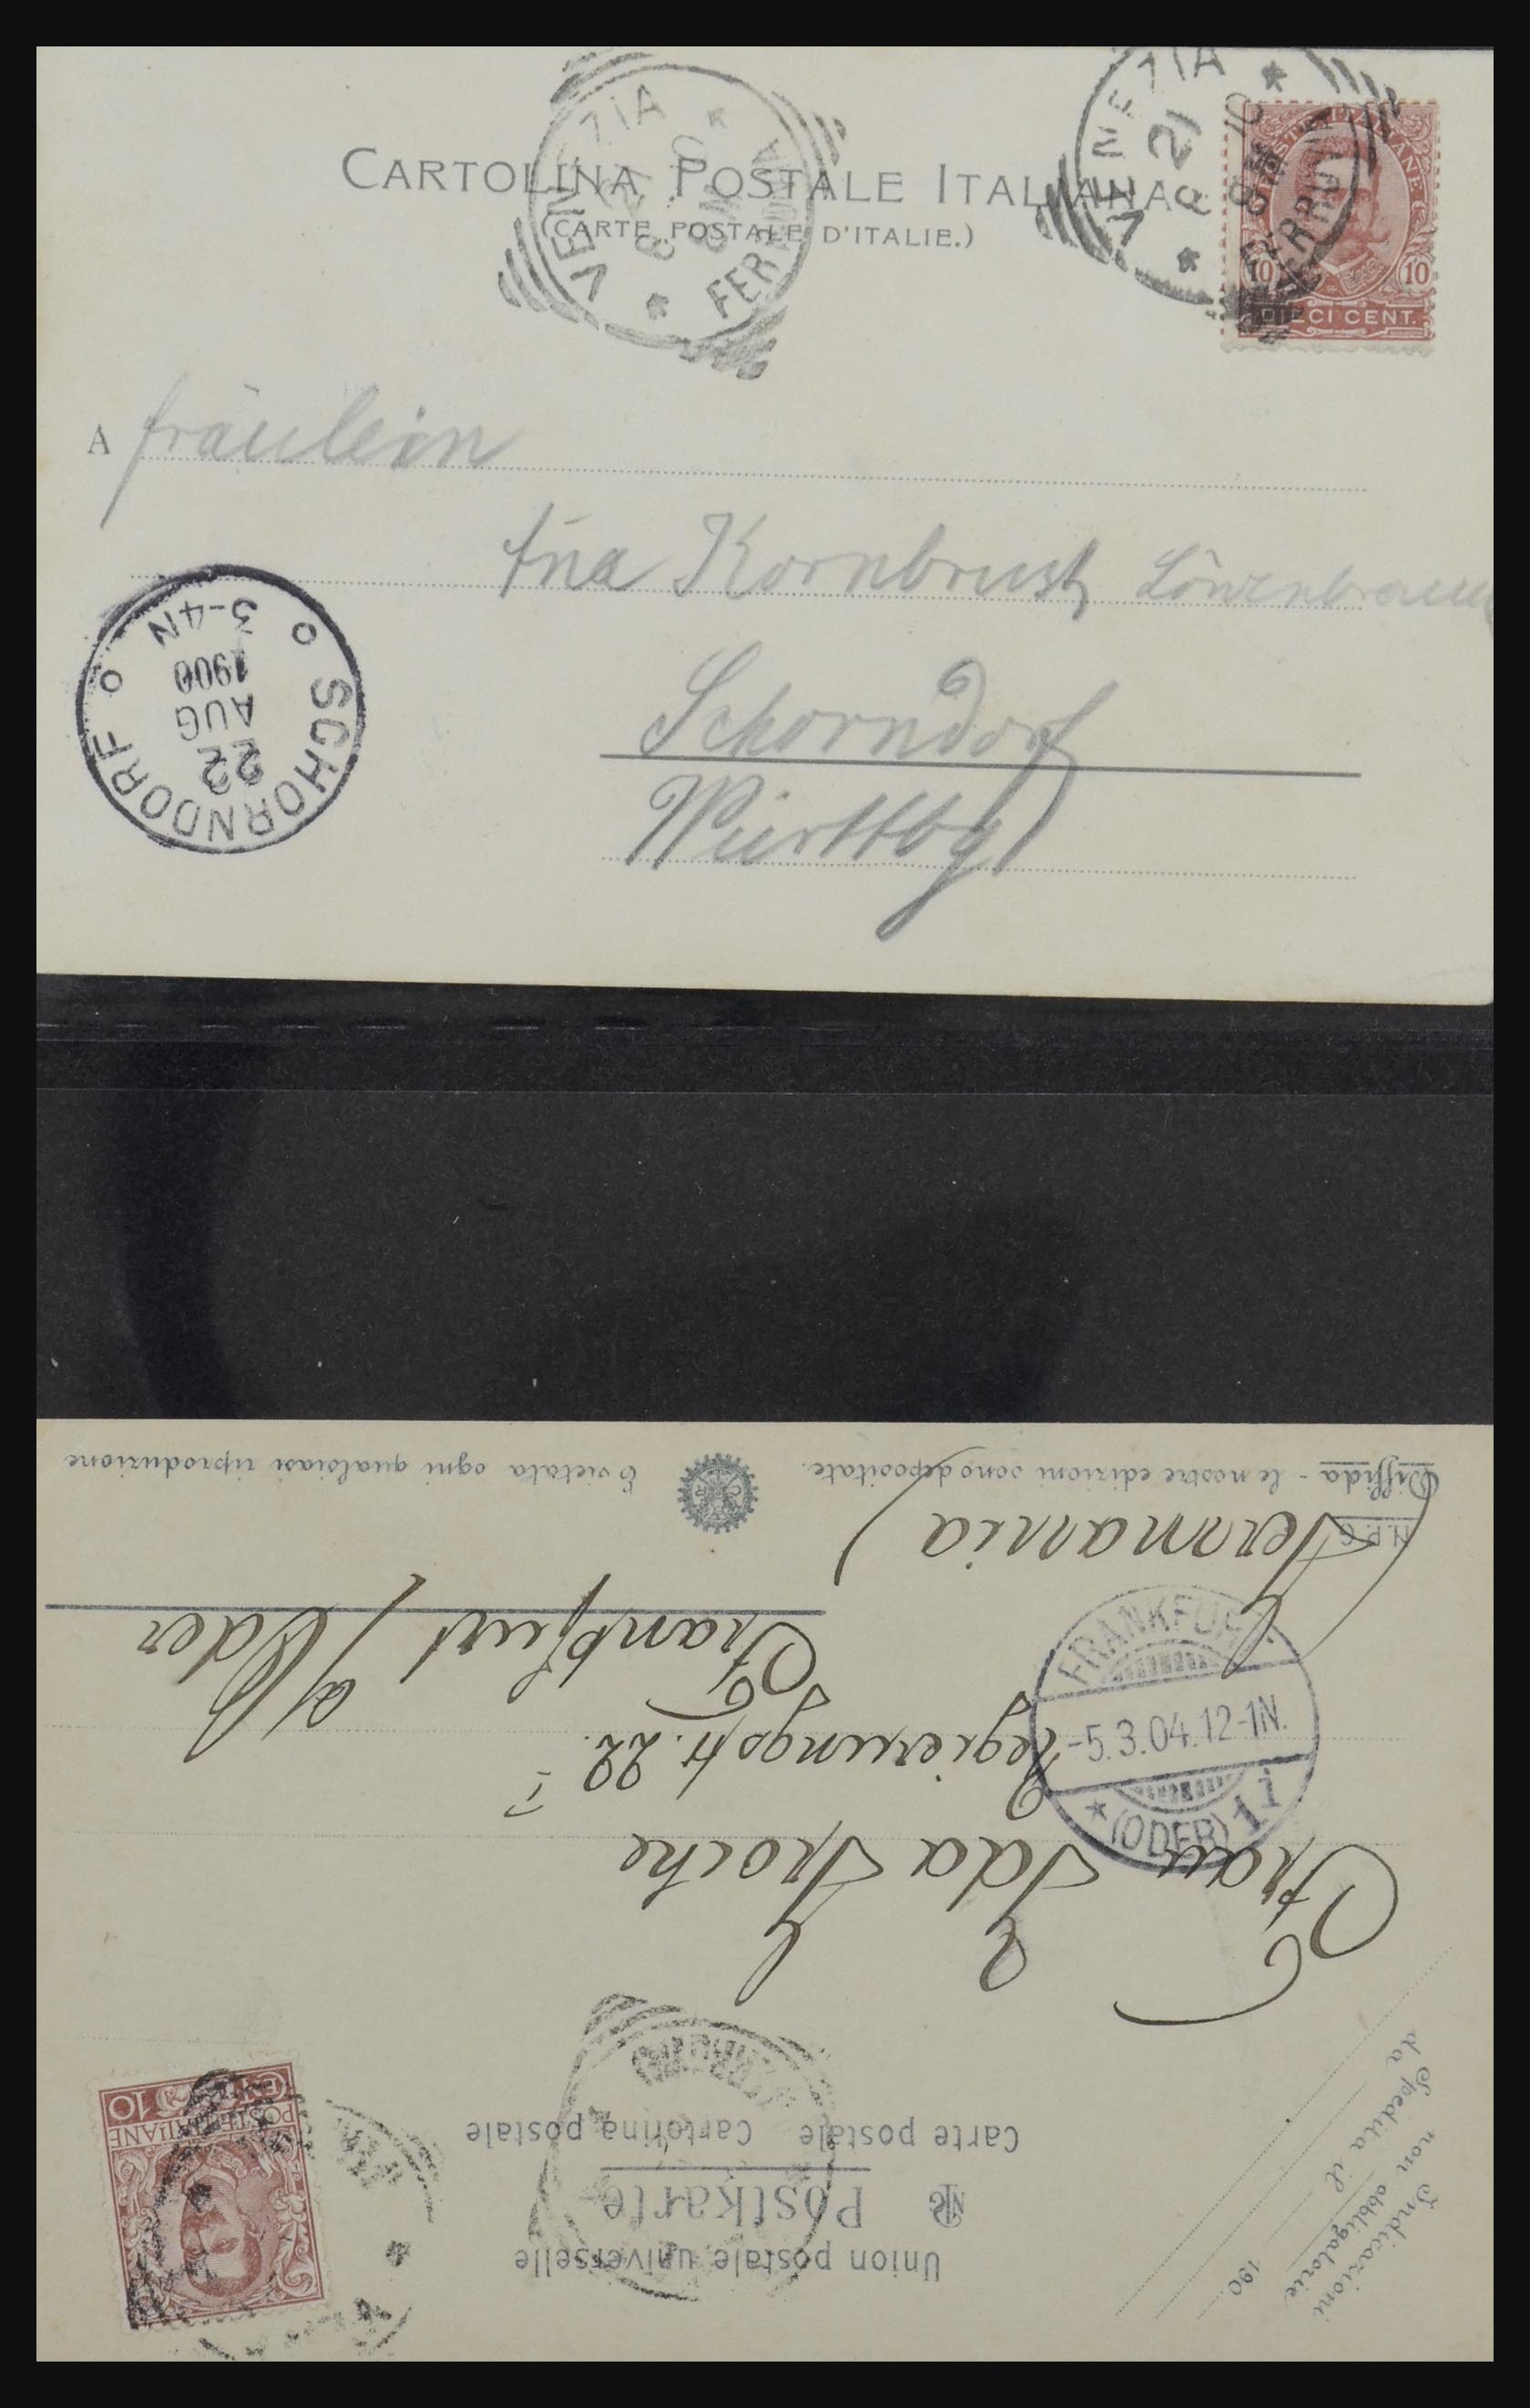 CARTOLINA POSTALE ITALIANA
(CARTE POSTALE D'ITALIE.)
VENEZIA
21
FERROVIA
VENEZIA
8 21
FERROVIA
POSTE ITALIANE
10 10
DIECI CENT.
A fräulein
Kornbrust
Schorndorf
Württbg
SCHORNDORF
22
AUG
1900
3-4N
Union postale universelle
NPG Postkarte
Carte postale Cartolina postale
Indicazioni
non obbligatorie
Spedita il
da
190
POSTE ITALIANE
CENT. 10
Frau Ida Groche
Regierungsstr. 22. I
Frankfurt a/Oder
(Germania)
FRANKFURT
-5.3.04.12-1N.
* (ODER) 1 i
N.P.G.
Diffida - le nostre edizioni sono depositate.
È vietata ogni qualsiasi riproduzione